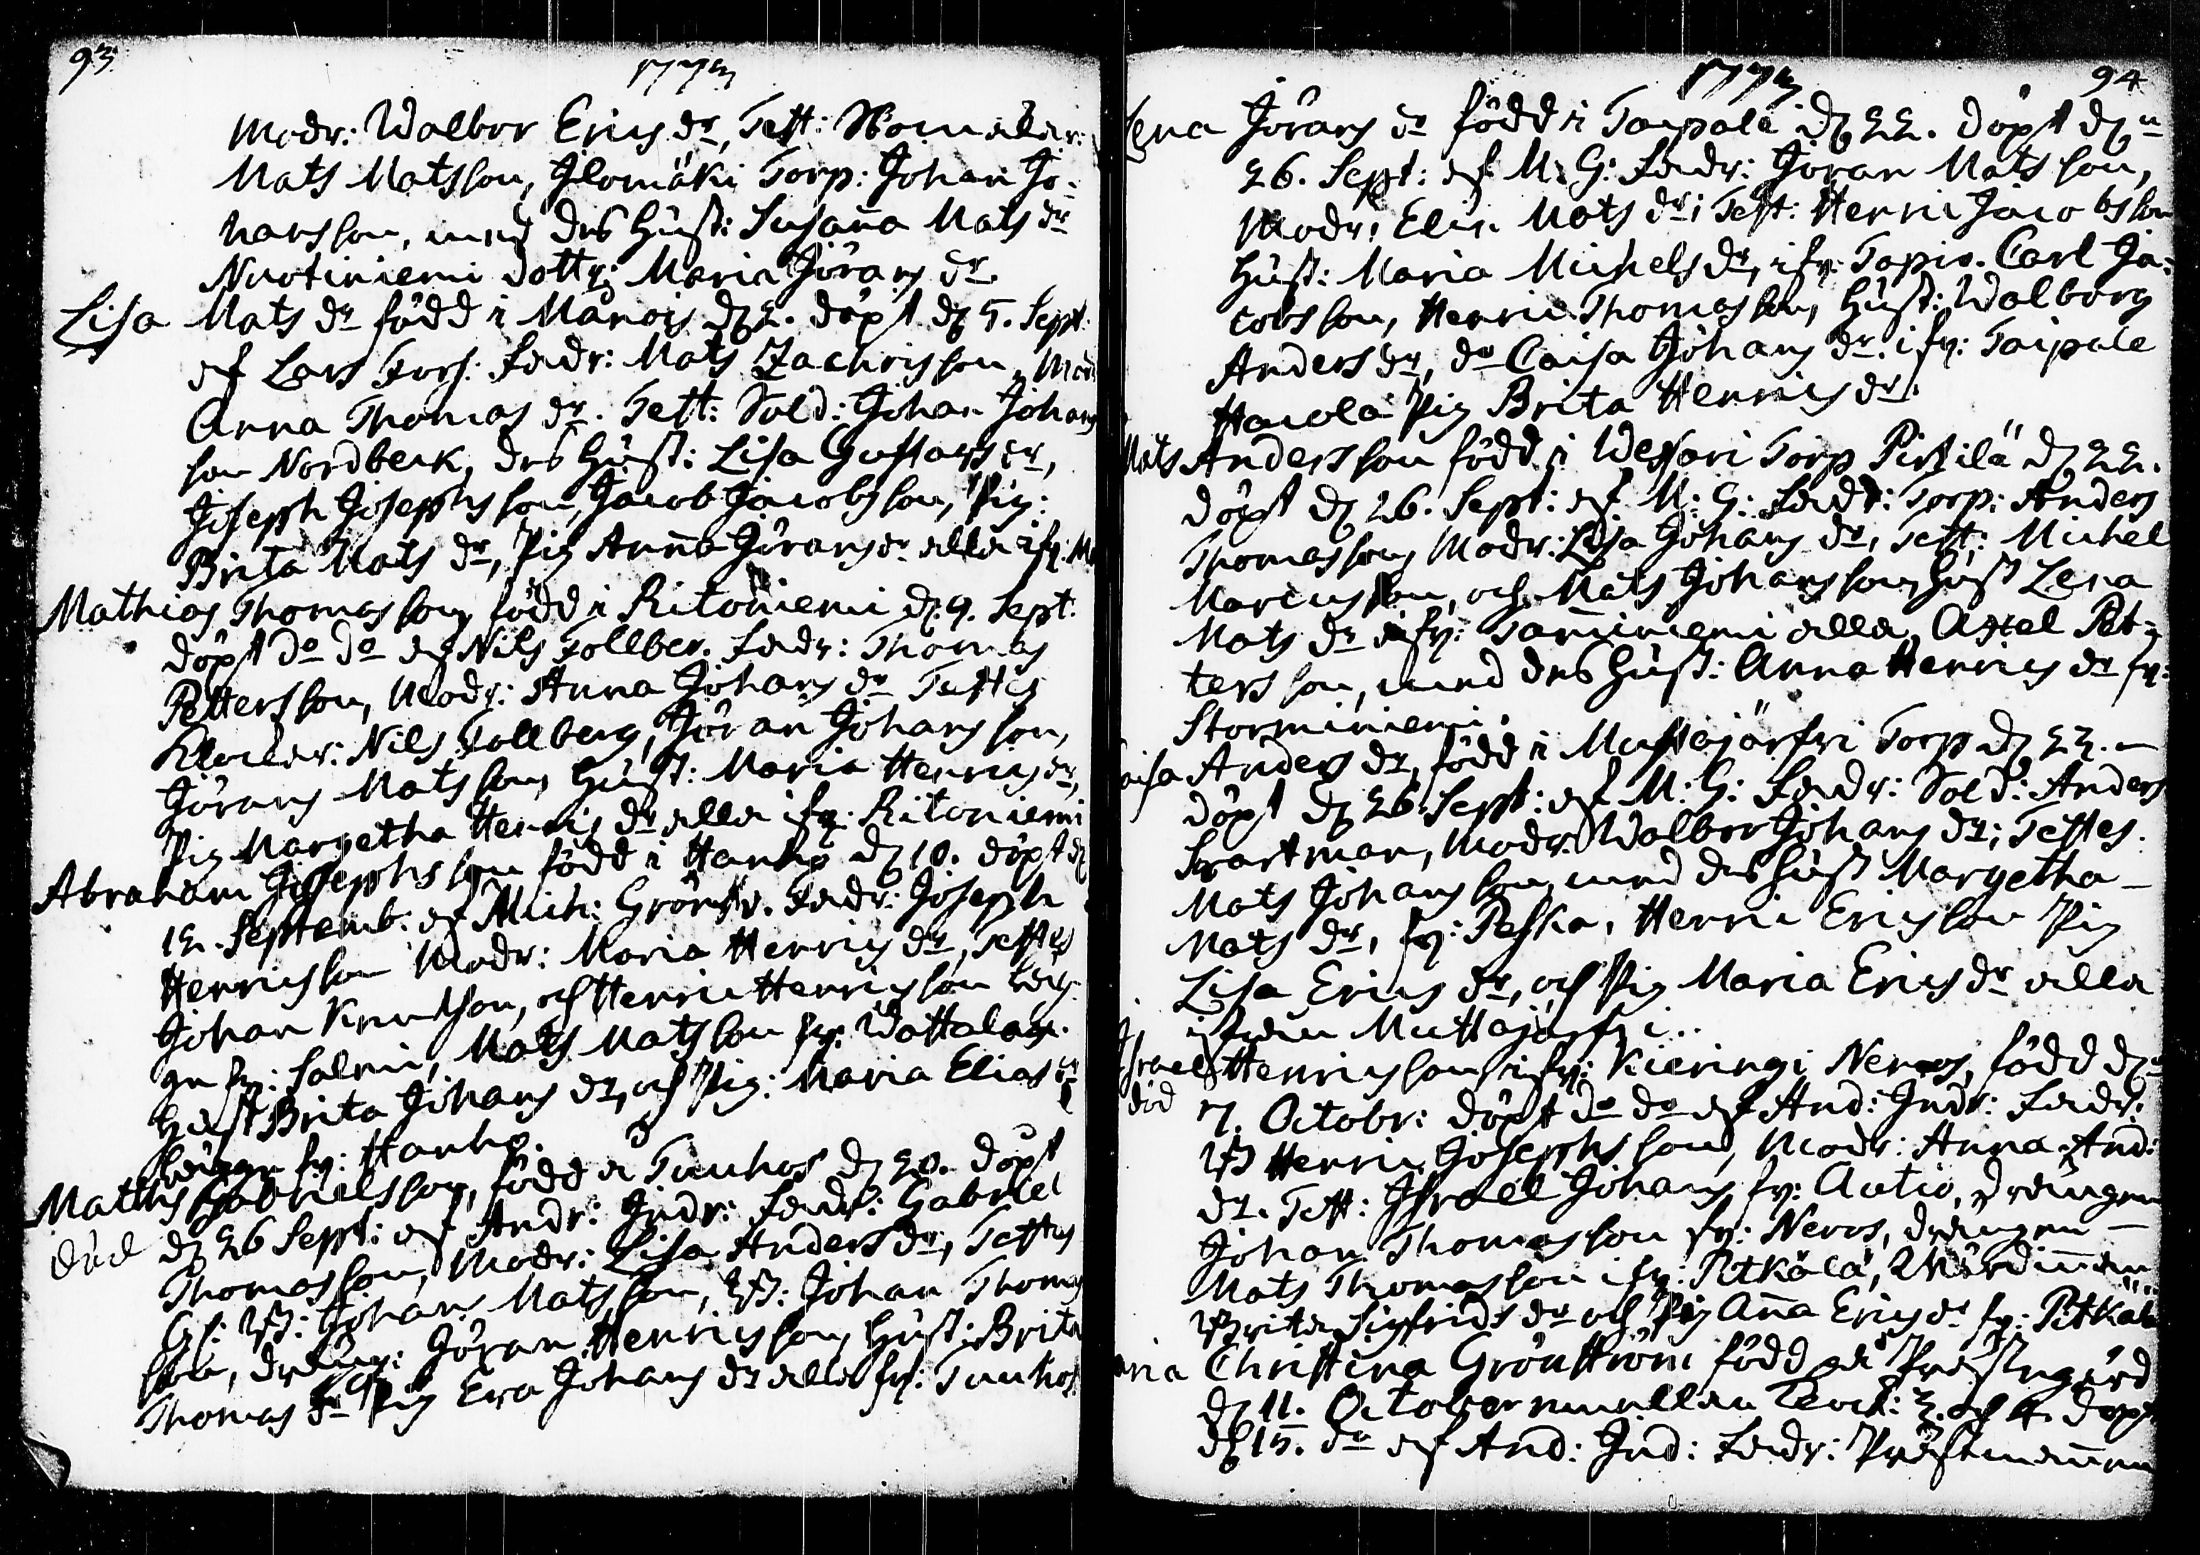 93
1773
Modr: Walbor Erics dr, Test:
Mats Matsson, Ilomäki Torp: Johan Jo-
hansson, med des Hust: Susaña Mats dr
Nuotiniemi dottr: Maria Jörans dr.
Lisa Mats dr född i Manois d 2. döpt d 5. Sept.
af Lars Fors: Fadr: Mats Zachrisson, Modr
Anna Thomas dr. Test: Sold: Johan Johans
son Nordbeck, des Hust: Lisa Gustafs dr,
Joseph Josephsson, Jacob Jacobsson, Pig:
Brita Mats dr, Pig Anna Jörans dr alla ifr:
Mathias Thomasson, född i Ritoniemi d. 9. Sept:
döpt do do af Nils Follber. Fadr: Thomas
Pettersson, Modr: Anna Johans dr Testes
Klockar: Nils Follberg, Jöran Johansson,
Jörans Matsson, Hust: Maria Henrics dr,
Pig Margetha Henrics dr alla ifr: Ritoniemi
Abraham Josephsson född i Hanho d 10. döpt d
12. Septemb: af Mich: Grönstr. Fadr: Joseph
Henricsson Modr: Maria Henrics dr, Testes
Johan Knutsson, och Henric Henricsson
fr: Salmi, Mats Matsson fr:
Hust Brita Johans dr, och Pig: Maria Elias dr
fr: Hanho.
Mathis Gabrielsson, född i Tuuhos d 20. döpt
död d 26 Sept: af Andr: Indr: Fadr: Gabriel
Thomasson, Modr: Lisa Anders dr, Testes
Johan Matsson, Johan Thomas
son, dräng: Jöran Henricsson, Hust: Brita
Thomas dr Pig Eva Johans dr alla fr: Tuuhos
1773
94
Lena Jörans dr född i Taipale d 22. döpt dn
26. Sept: af M. G: Fadr: Jöran Matsson,
Modr: Elis. Mats dr; Test: Henric Jacobsson
Hust: Maria Michels dr, ifr: Tapio. Carl Ja-
cobsson, Henric Thomasson, Hust: Walborg
Anders dr, do Caisa Johans dr. ifr: Taipale
Haucola Pig Brita Henrics dr.
Mats Andersson född i Wessari Torp Pirtilä d 22.
döpt d 26. Sept: af M: G: Fadr: Torp: Anders
Thomasson, Modr: Lisa Johans dr, Test: Michel
Marcusson, och Mats Johansson, Hust Lena
Mats dr ifr: Tanniniemi alla, Axel Pet-
tersson, med des Hust: Anna Henrics dr fr:
Storminiemi.
Caisa Anders dr, född i Mustajärfvi Torp d 22.
döpt d 26. Sept: af M: G: Fadr: Sold: Anders
Svartman, Modr: Walbor Johans dr; Testes.
Mats Johansson med des Hust Margetha
Mats dr, fr: Peska, Henric Ericsson Pig
Lisa Erics dr, och Pig Maria Erics dr alla
ifrån Mustajärfvi..
Israel Henricsson ifr: Kieringi Neros, född dn
död 7. Octobr: döpt do do af And: Indr: Fadr:
Henric Josephsson, Modr: Anna And:
dr. Test: Israel Johans fr: Autio, drängen
Johan Thomasson fr: Neros, drängen
Mats Thomasson ifr: Pitkälä, Wärdinnan
Brita Sigfrids dr och Pig Aña Erics dr fr: Pitkälä
Maria Christina Grönström född på Prästegård
d 11. October mellan klock: 3. och 4. döpt
d 15. do af And: Ind: Fadr: Prästmannen